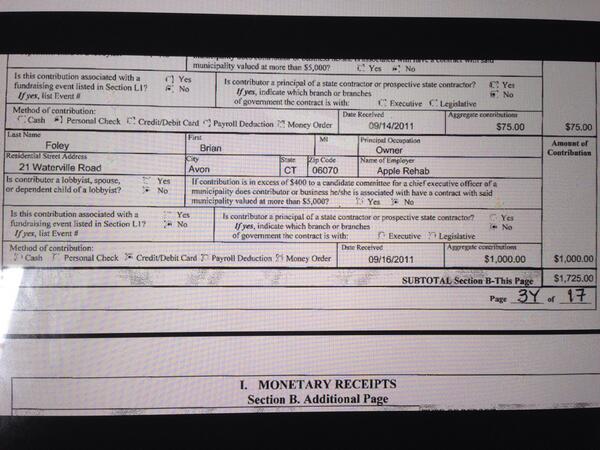 municipality valued at more than $5,000? Yes No
Is this contribution associated with a Yes
fundraising event listed in Section L1? No
If yes, list Event #
Is contributor a principal of a state contractor or prospective state contractor? Yes
If yes, indicate which branch or branches No
of government the contract is with: Executive Legislative
Method of contribution:
Cash Personal Check Credit/Debit Card Payroll Deduction Money Order
Date Received
09/14/2011
Aggregate contributions
$75.00
$75.00
Last Name
Foley
First
Brian
MI
Principal Occupation
Owner
Amount of
Contribution
Residential Street Address
21 Waterville Road
City
Avon
State
CT
Zip Code
06070
Name of Employer
Apple Rehab
Is contributor a lobbyist, spouse, Yes
or dependent child of a lobbyist? No
If contribution is in excess of $400 to a candidate committee for a chief executive officer of a
municipality does contributor or business he/she is associated with have a contract with said
municipality valued at more than $5,000? Yes No
Is this contribution associated with a Yes
fundraising event listed in Section L1? No
If yes, list Event #
Is contributor a principal of a state contractor or prospective state contractor? Yes
If yes, indicate which branch or branches No
of government the contract is with: Executive Legislative
Method of contribution:
Cash Personal Check Credit/Debit Card Payroll Deduction Money Order
Date Received
09/16/2011
Aggregate contributions
$1,000.00
$1,000.00
SUBTOTAL Section B-This Page $1,725.00
Page 3Y of 17
I. MONETARY RECEIPTS
Section B. Additional Page